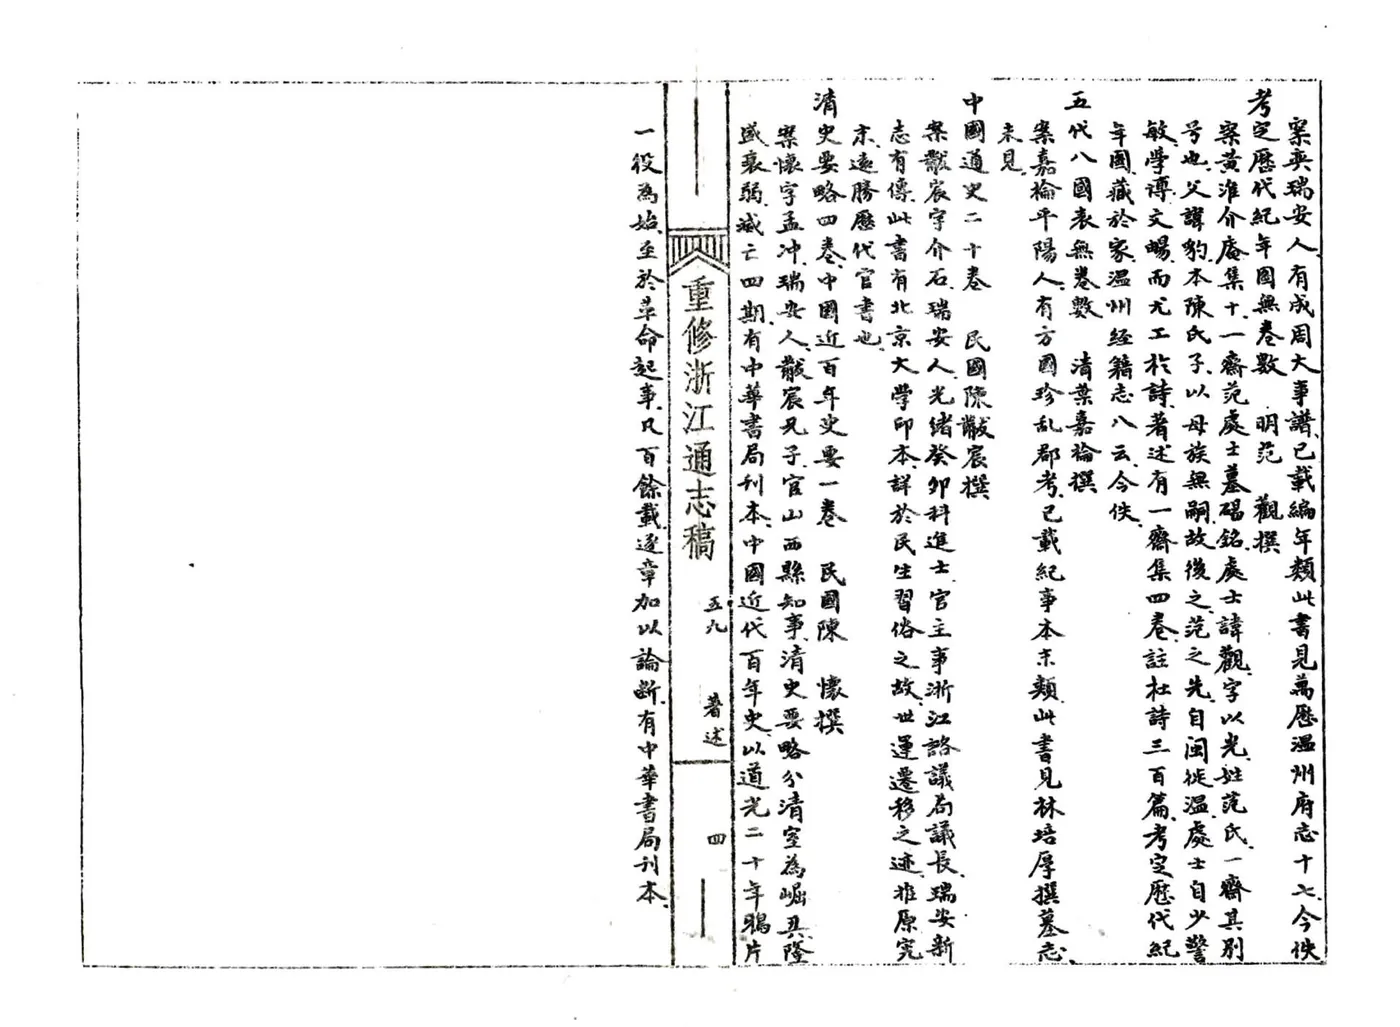 案奕瑞安人有成周大事譜已載編年類此書見萬歷溫州府志十七今佚
考定歷代紀年圖無卷數　明范　觀撰
案黃淮介庵集十一齋范處士墓碣銘處士諱觀字以光姓范氏一齋其別
号也父諱豹本陳氏子以母族無嗣故後之范之先自閩徙溫處士自少警
敏學博文暢而尤工於詩著述有一齋集四卷註杜詩三百篇考定歷代紀
年圖藏於家溫州經籍志八云今佚
五代八國表無卷數　清葉嘉棆撰
案嘉棆平陽人有方國珍乱郡考已載紀事本末類此書見林培厚撰墓志
未見
中國通史二十卷　民國陳黻宸撰
案黻宸字介石瑞安人光緒癸卯科進士官主事浙江諮議局議長瑞安新
志有傳此書有北京大學印本詳於民生習俗之故世運遷移之迹推原究
末遠勝歷代官書也
清史要略四卷中國近百年史要一卷　民國陳　懷撰
案懷字孟冲瑞安人黻宸兄子官山西縣知事清史要略分清室為崛興隆
盛衰弱滅亡四期有中華書局刊本中國近代百年史以道光二十年鴉片
重修浙江通志稿　五九　著述　四
一役為始至於革命起事凡百餘載逐章加以論斷有中華書局刊本